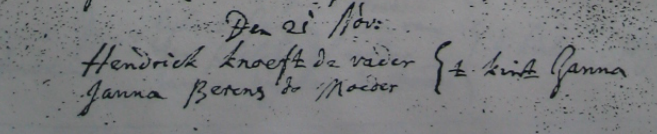 Den 21 Nov:
Hendrick knoeft de vader { t. kint Janna
Janna Berens de Moeder